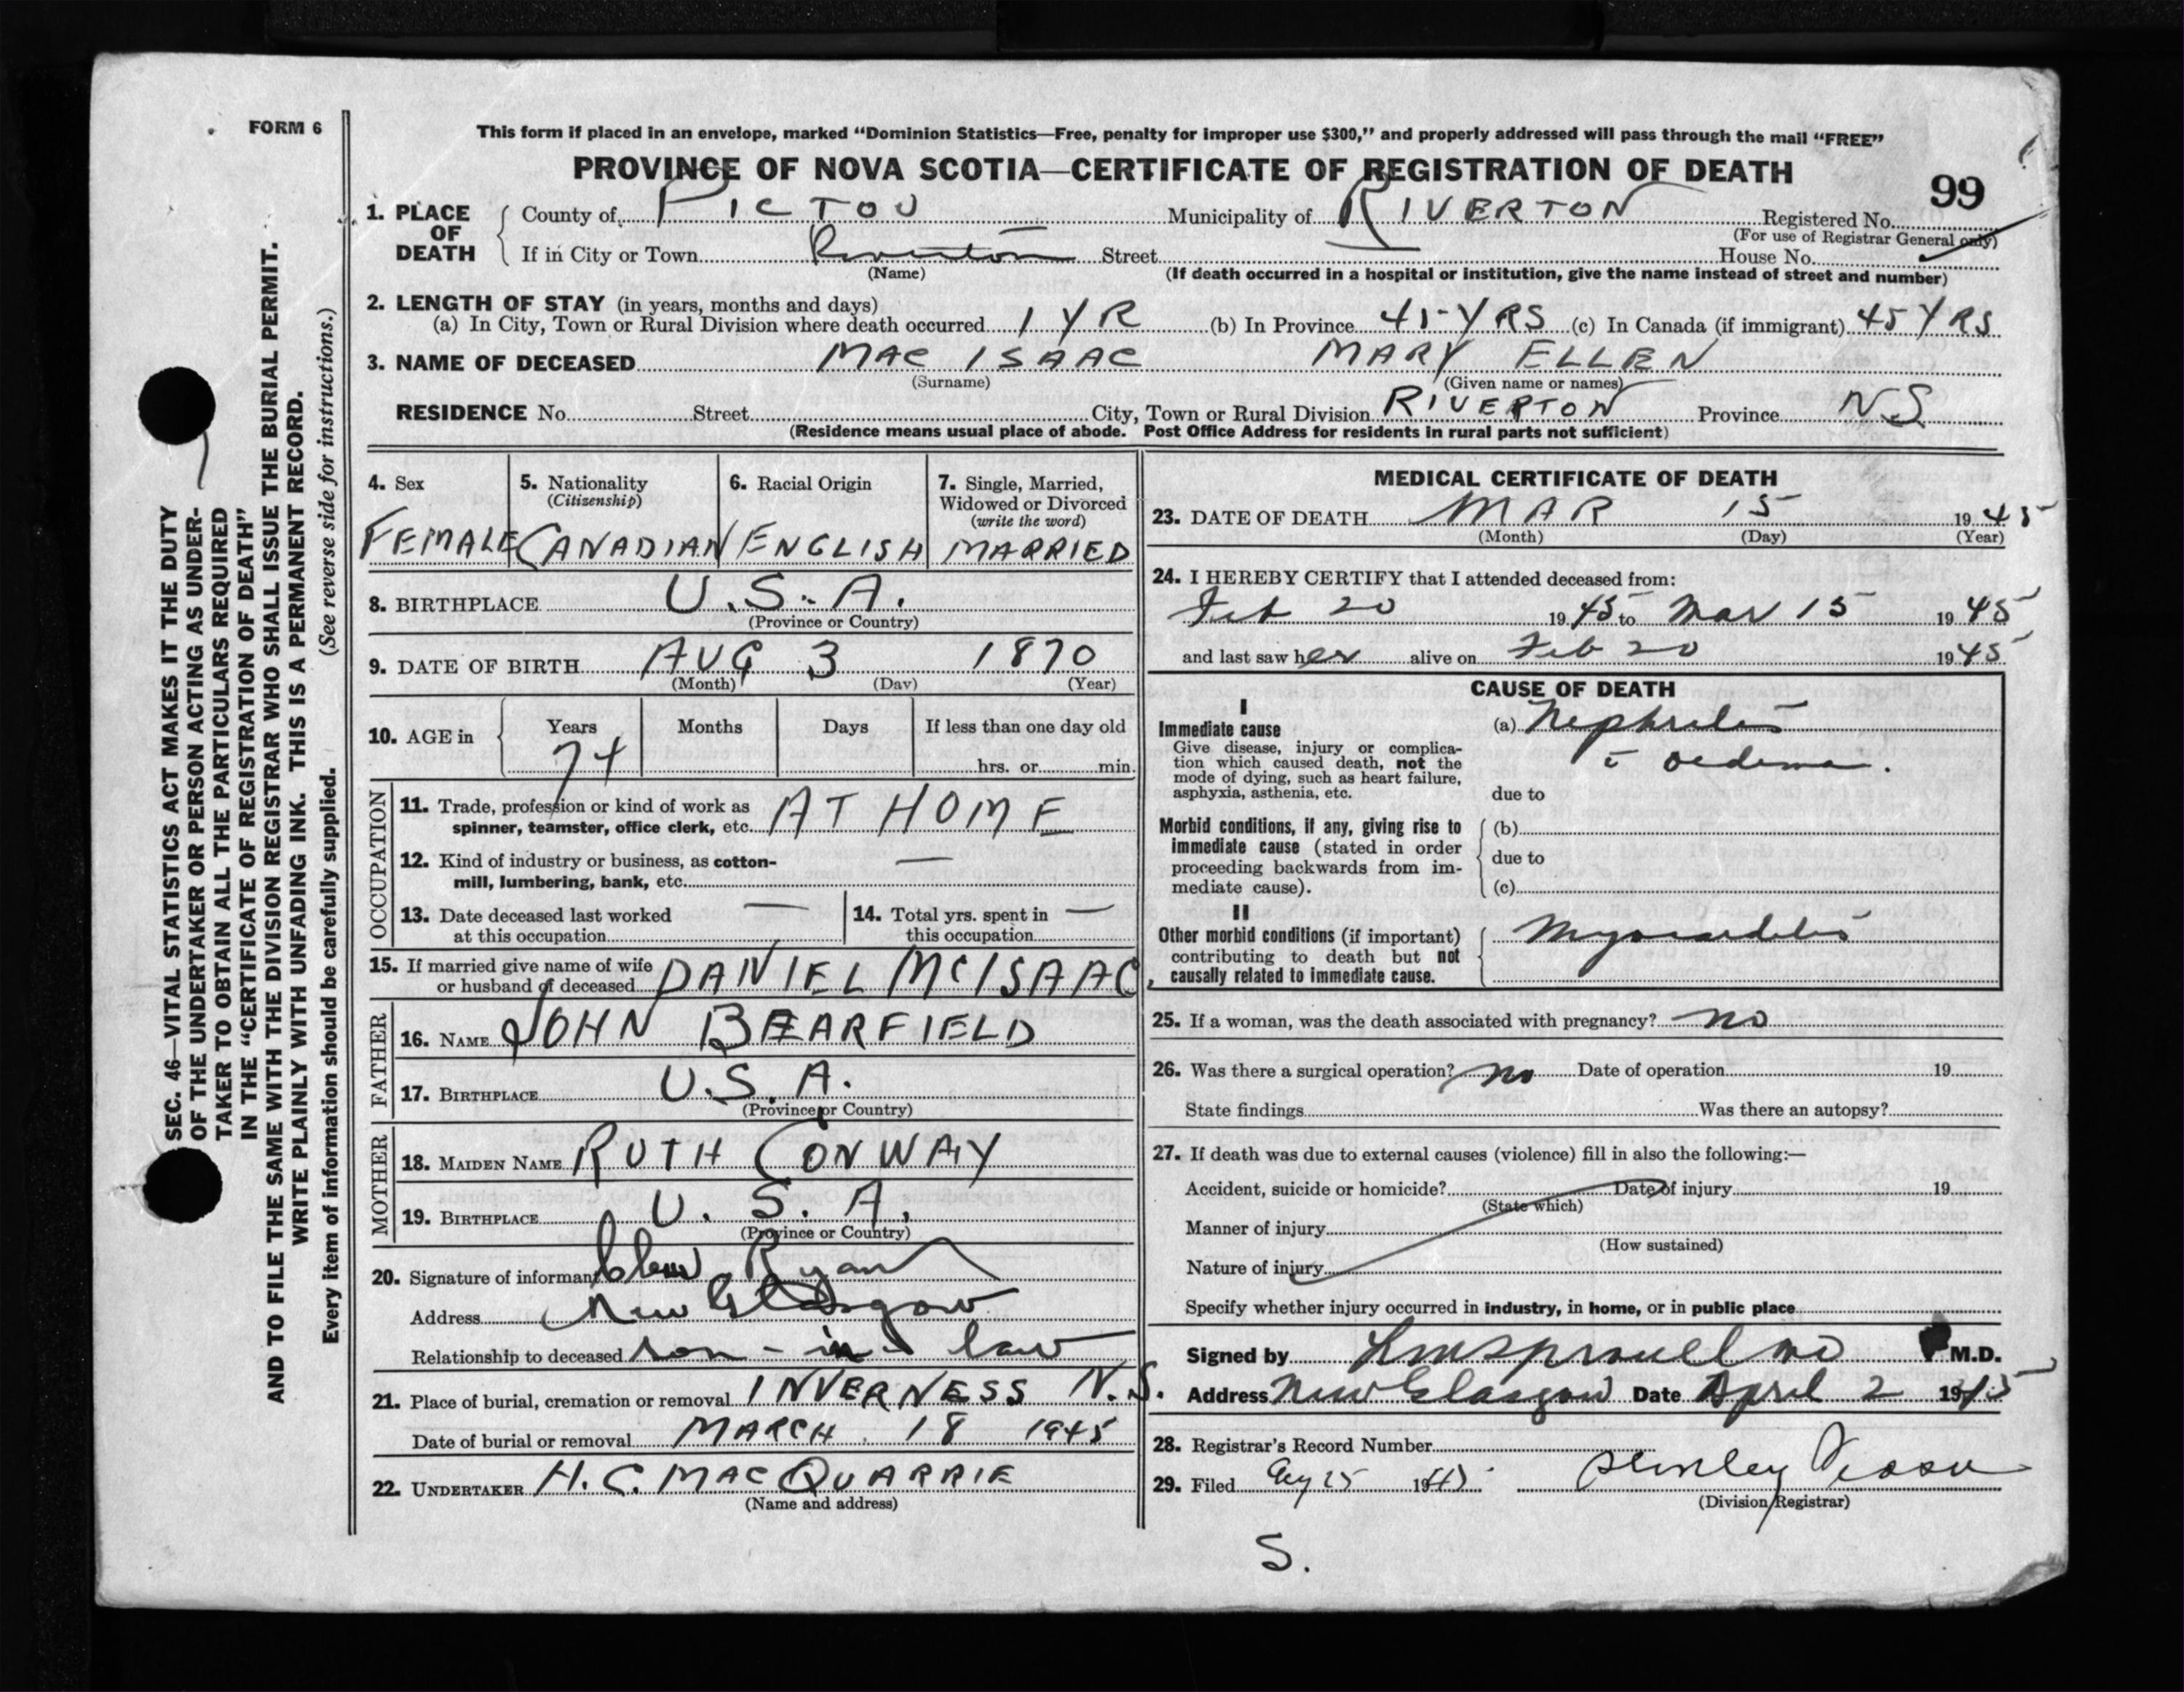 FORM 6
This form if placed in an envelope, marked “Dominion Statistics—Free, penalty for improper use $300,” and properly addressed will pass through the mail “FREE”
PROVINCE OF NOVA SCOTIA—CERTIFICATE OF REGISTRATION OF DEATH
99
1. PLACE OF DEATH
County of PICTOU Municipality of RIVERTON Registered No.
(For use of Registrar General only)
If in City or Town Riverton Street House No.
(Name) (If death occurred in a hospital or institution, give the name instead of street and number)
2. LENGTH OF STAY (in years, months and days)
(a) In City, Town or Rural Division where death occurred 1 YR (b) In Province 45 YRS (c) In Canada (if immigrant) 45 YRS
3. NAME OF DECEASED MAC ISAAC MARY ELLEN
(Surname) (Given name or names)
RESIDENCE No. Street City, Town or Rural Division RIVERTON Province N.S
(Residence means usual place of abode. Post Office Address for residents in rural parts not sufficient)
4. Sex
FEMALE
5. Nationality
(Citizenship)
CANADIAN
6. Racial Origin
ENGLISH
7. Single, Married,
Widowed or Divorced
(write the word)
MARRIED
8. BIRTHPLACE U.S.A.
(Province or Country)
9. DATE OF BIRTH AUG 3 1870
(Month) (Day) (Year)
10. AGE in Years Months Days If less than one day old
74 hrs. or min.
OCCUPATION
11. Trade, profession or kind of work as
spinner, teamster, office clerk, etc. AT HOME
12. Kind of industry or business, as cotton- —
mill, lumbering, bank, etc.
13. Date deceased last worked —
at this occupation
14. Total yrs. spent in —
this occupation
15. If married give name of wife
or husband of deceased DANIEL MCISAAC
FATHER
16. NAME JOHN BEARFIELD
17. BIRTHPLACE U.S.A.
(Province or Country)
MOTHER
18. MAIDEN NAME RUTH CONWAY
19. BIRTHPLACE U.S.A.
(Province or Country)
20. Signature of informant Clem Ryan
Address New Glasgow
Relationship to deceased son-in-law
21. Place of burial, cremation or removal INVERNESS N.S.
Date of burial or removal MARCH 18 1945
22. UNDERTAKER H.C. MACQUARRIE
(Name and address)
MEDICAL CERTIFICATE OF DEATH
23. DATE OF DEATH MAR 15 1945
(Month) (Day) (Year)
24. I HEREBY CERTIFY that I attended deceased from:
Feb 20 1945 to Mar 15 1945
and last saw her alive on Feb 20 1945
CAUSE OF DEATH
I
Immediate cause
Give disease, injury or complica-
tion which caused death, not the
mode of dying, such as heart failure,
asphyxia, asthenia, etc.
(a) Nephritis
c̄ oedema.
due to
Morbid conditions, if any, giving rise to
immediate cause (stated in order
proceeding backwards from im-
mediate cause).
(b)
due to
(c)
II
Other morbid conditions (if important)
contributing to death but not
causally related to immediate cause.
Myocarditis
25. If a woman, was the death associated with pregnancy? no
26. Was there a surgical operation? no Date of operation 19
State findings Was there an autopsy?
27. If death was due to external causes (violence) fill in also the following:—
Accident, suicide or homicide? Date of injury 19
(State which)
Manner of injury
(How sustained)
Nature of injury
Specify whether injury occurred in industry, in home, or in public place
Signed by M.D.
Address New Glasgow Date April 2 1945
28. Registrar's Record Number
29. Filed 25 1945
(Division Registrar)
S.
SEC. 46—VITAL STATISTICS ACT MAKES IT THE DUTY
OF THE UNDERTAKER OR PERSON ACTING AS UNDER-
TAKER TO OBTAIN ALL THE PARTICULARS REQUIRED
IN THE “CERTIFICATE OF REGISTRATION OF DEATH”
AND TO FILE THE SAME WITH THE DIVISION REGISTRAR WHO SHALL ISSUE THE BURIAL PERMIT.
WRITE PLAINLY WITH UNFADING INK. THIS IS A PERMANENT RECORD.
Every item of information should be carefully supplied. (See reverse side for instructions.)